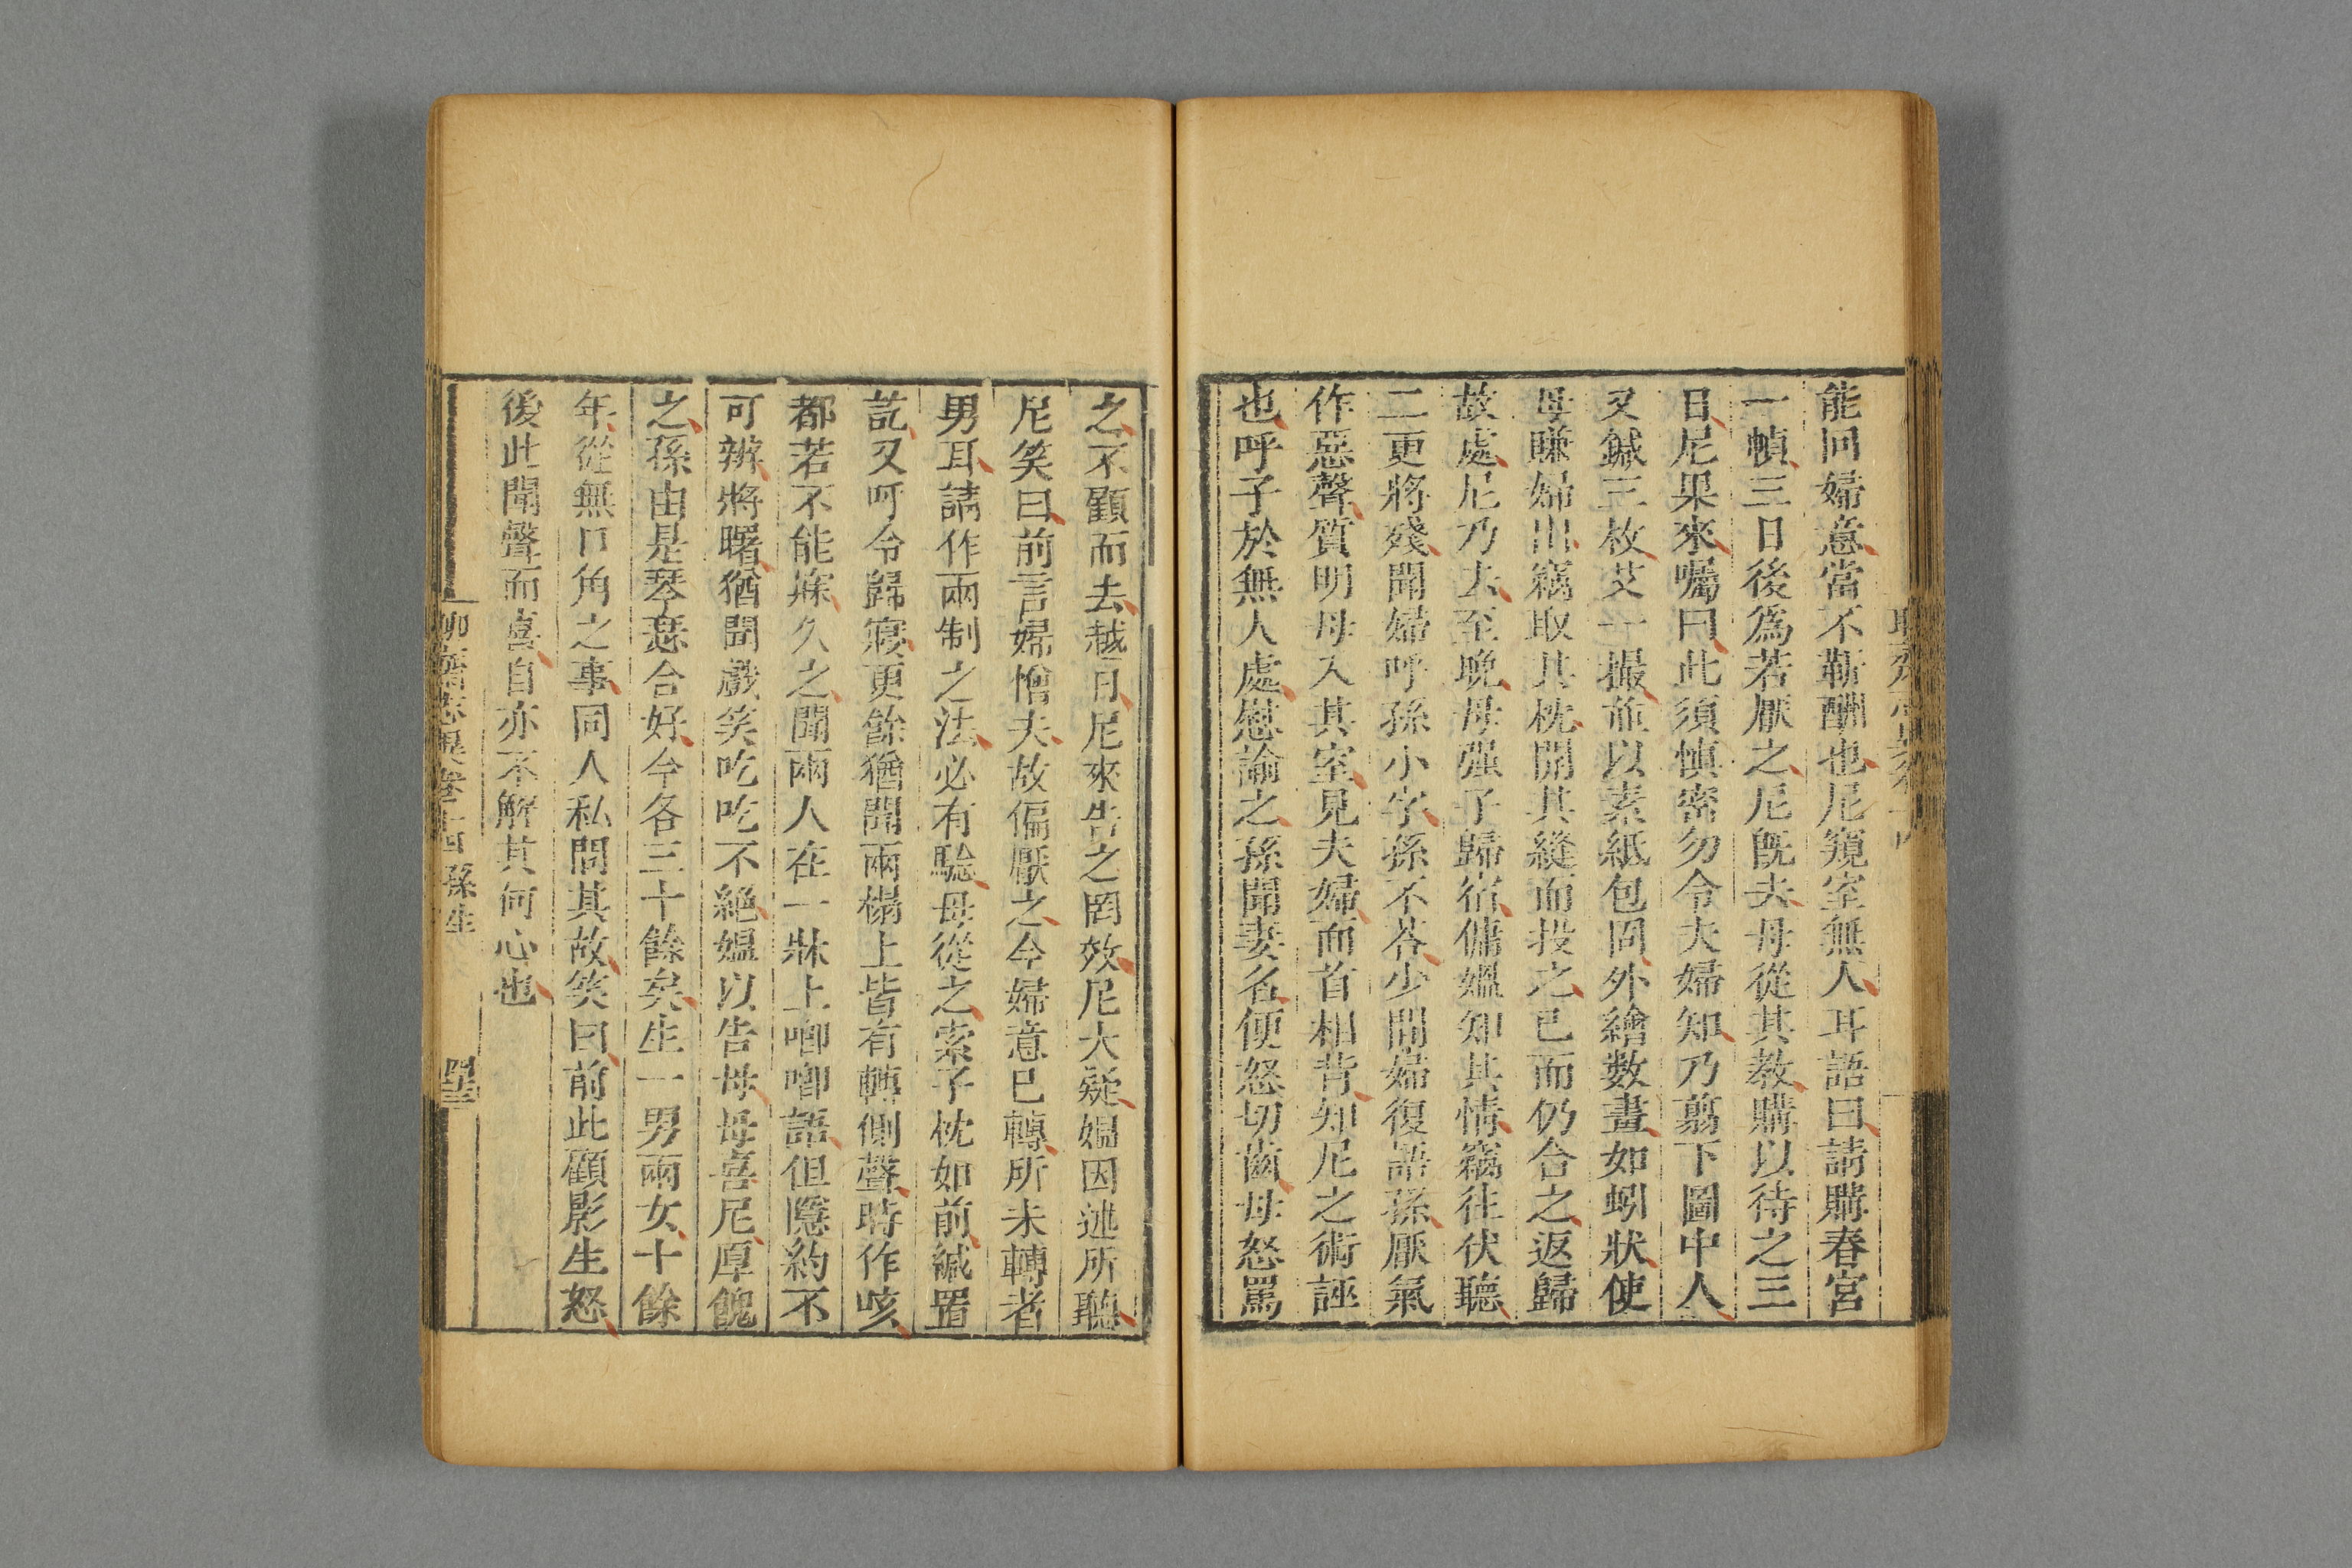 能回婦意當不靳酬也尼窺室無人耳語曰請購春宮
一幀三日後爲若厭之尼旣去母從其教購以待之三
日尼果來囑曰此須慎密勿令夫婦知乃翦下圖中人
又鍼三枚艾一撮並以素紙包固外繪數畫如蚓狀使
母賺婦出竊取其枕開其縫而投之已而仍合之返歸
故處尼乃去至晚母强子歸宿傭媼知其情竊往伏聽
二更將殘聞婦呼孫小字孫不荅少間婦復語孫厭氣
作惡聲質明母入其室見夫婦面首相背知尼之術誣
也呼子於無人處慰諭之孫聞妻名便怒切齒母怒罵
之不顧而去越日尼來告之罔效尼大疑媼因述所聽
尼笑曰前言婦憎夫故偏厭之今婦意已轉所未轉者
男耳請作兩制之法必有驗母從之索子枕如前緘置
訖又呼令歸寢更餘猶聞兩榻上皆有轉側聲時作咳
都若不能寐久之聞兩人在一牀上唧唧語但隱約不
可辨將曙猶聞戲笑吃吃不絕媼以告母母喜尼厚餽
之孫由是琴瑟合好今各三十餘矣生一男兩女十餘
年從無口角之事同人私問其故笑曰前此顧影生怒
後此聞聲而喜自亦不解其何心也
聊齋志異卷十四 孫生